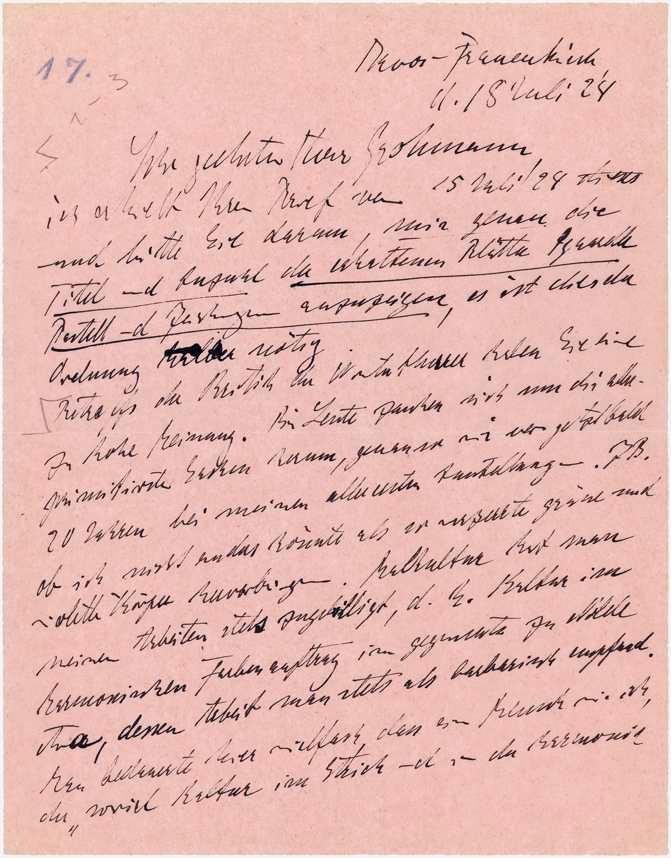 17.
Davos-Frauenkirch
d. 18 Juli 24
Sehr geehrter Herr Grohmann
ich erhielt Ihren Brief vom 15 Juli 24
und bitte Sie darum, mir genau die
Titel und Anzahl der erhaltenen Blätter Aquarelle
Pastell und Zeichnungen anzuzeigen, es ist dies der
Ordnung halber nötig
Betreffs der Kritik der haben Sie eine
zu hohe Meinung. Die Leute zanken sich um die aller-
primitivsten Sachen herum, genau so wie vor
20 Jahren bei meinen allerersten Ausstellungen. Z.B.
ob ich nicht anders könnte als so verzerrte grüne und
violette Körper hervorbringen. Malkultur hat man
meinen Arbeiten stets zugebilligt, d. h. Kultur im
harmonischen Farbenauftrag im gegensatz zu Nolde
etwa, dessen Arbeit man stets als barbarisch empfand.
Man bedauerte hier vielfach dass ein Mensch wie ich,
der „soviel Kultur im Strich und in der harmoni-